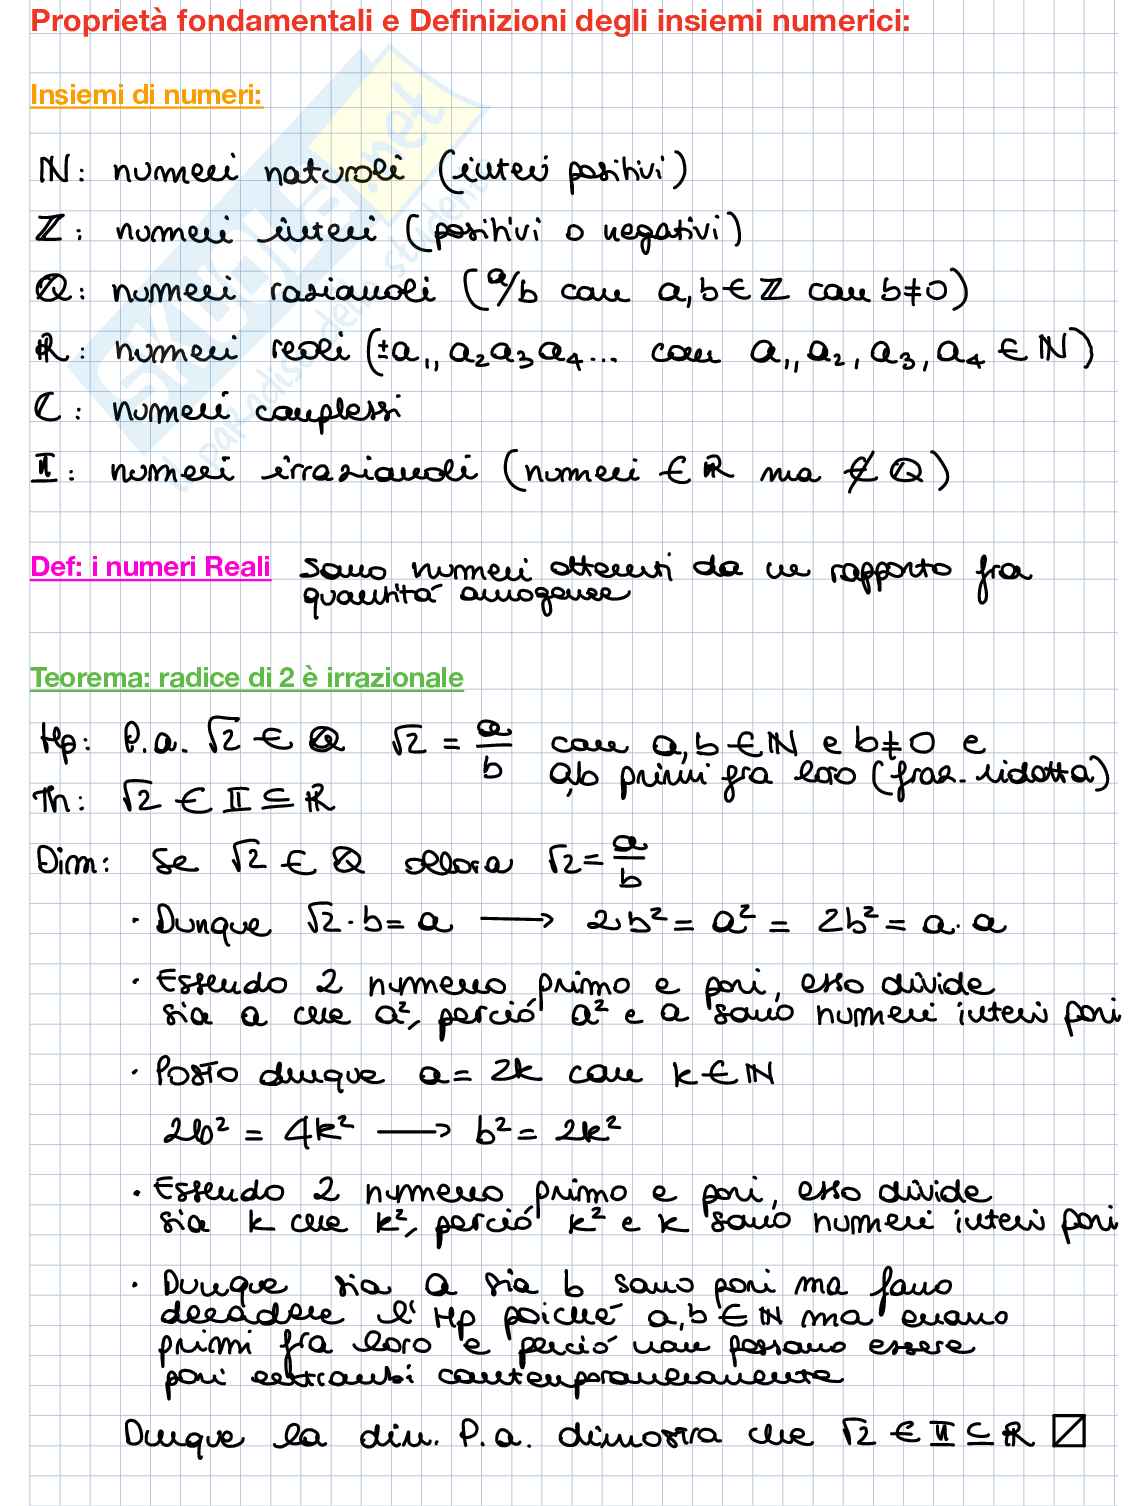 Proprietà fondamentali e Definizioni degli insiemi numerici:
Insiemi di numeri:
ℕ: numeri naturali (interi positivi)
ℤ: numeri interi (positivi o negativi)
ℚ: numeri razionali (a/b con a,b∈ℤ con b≠0)
ℝ: numeri reali (±a₁, a₂a₃a₄... con a₁, a₂, a₃, a₄ ∈ ℕ)
ℂ: numeri complessi
𝕀: numeri irrazionali (numeri ∈ ℝ ma ∉ ℚ)
Def: i numeri Reali sono numeri ottenuti da un rapporto fra
quantità omogenee
Teorema: radice di 2 è irrazionale
Hp: P.a. √2 ∈ ℚ √2 = a/b con a,b∈ℕ e b≠0 e
a,b primi fra loro (fraz. ridotta)
Th: √2 ∈ 𝕀 ⊆ ℝ
Dim: Se √2 ∈ ℚ allora √2 = a/b
· Dunque √2 · b = a → 2b² = a² = 2b² = a · a
· Essendo 2 numero primo e pari, esso divide
sia a che a², perció a² e a sono numeri interi pari
· Posto dunque a = 2k con k∈ℕ
2b² = 4k² → b² = 2k²
· Essendo 2 numero primo e pari, esso divide
sia k che k², perció k² e k sono numeri interi pari
· Dunque sia a sia b sono pari ma fano
decadere l'Hp poiché a,b∈ℕ ma erano
primi fra loro e perció non possono essere
pari entrambi contemporaneamente
Dunque la dim. P.a. dimostra che √2 ∈ 𝕀 ⊆ ℝ
SKUOLA.net
il paradiso dello studente